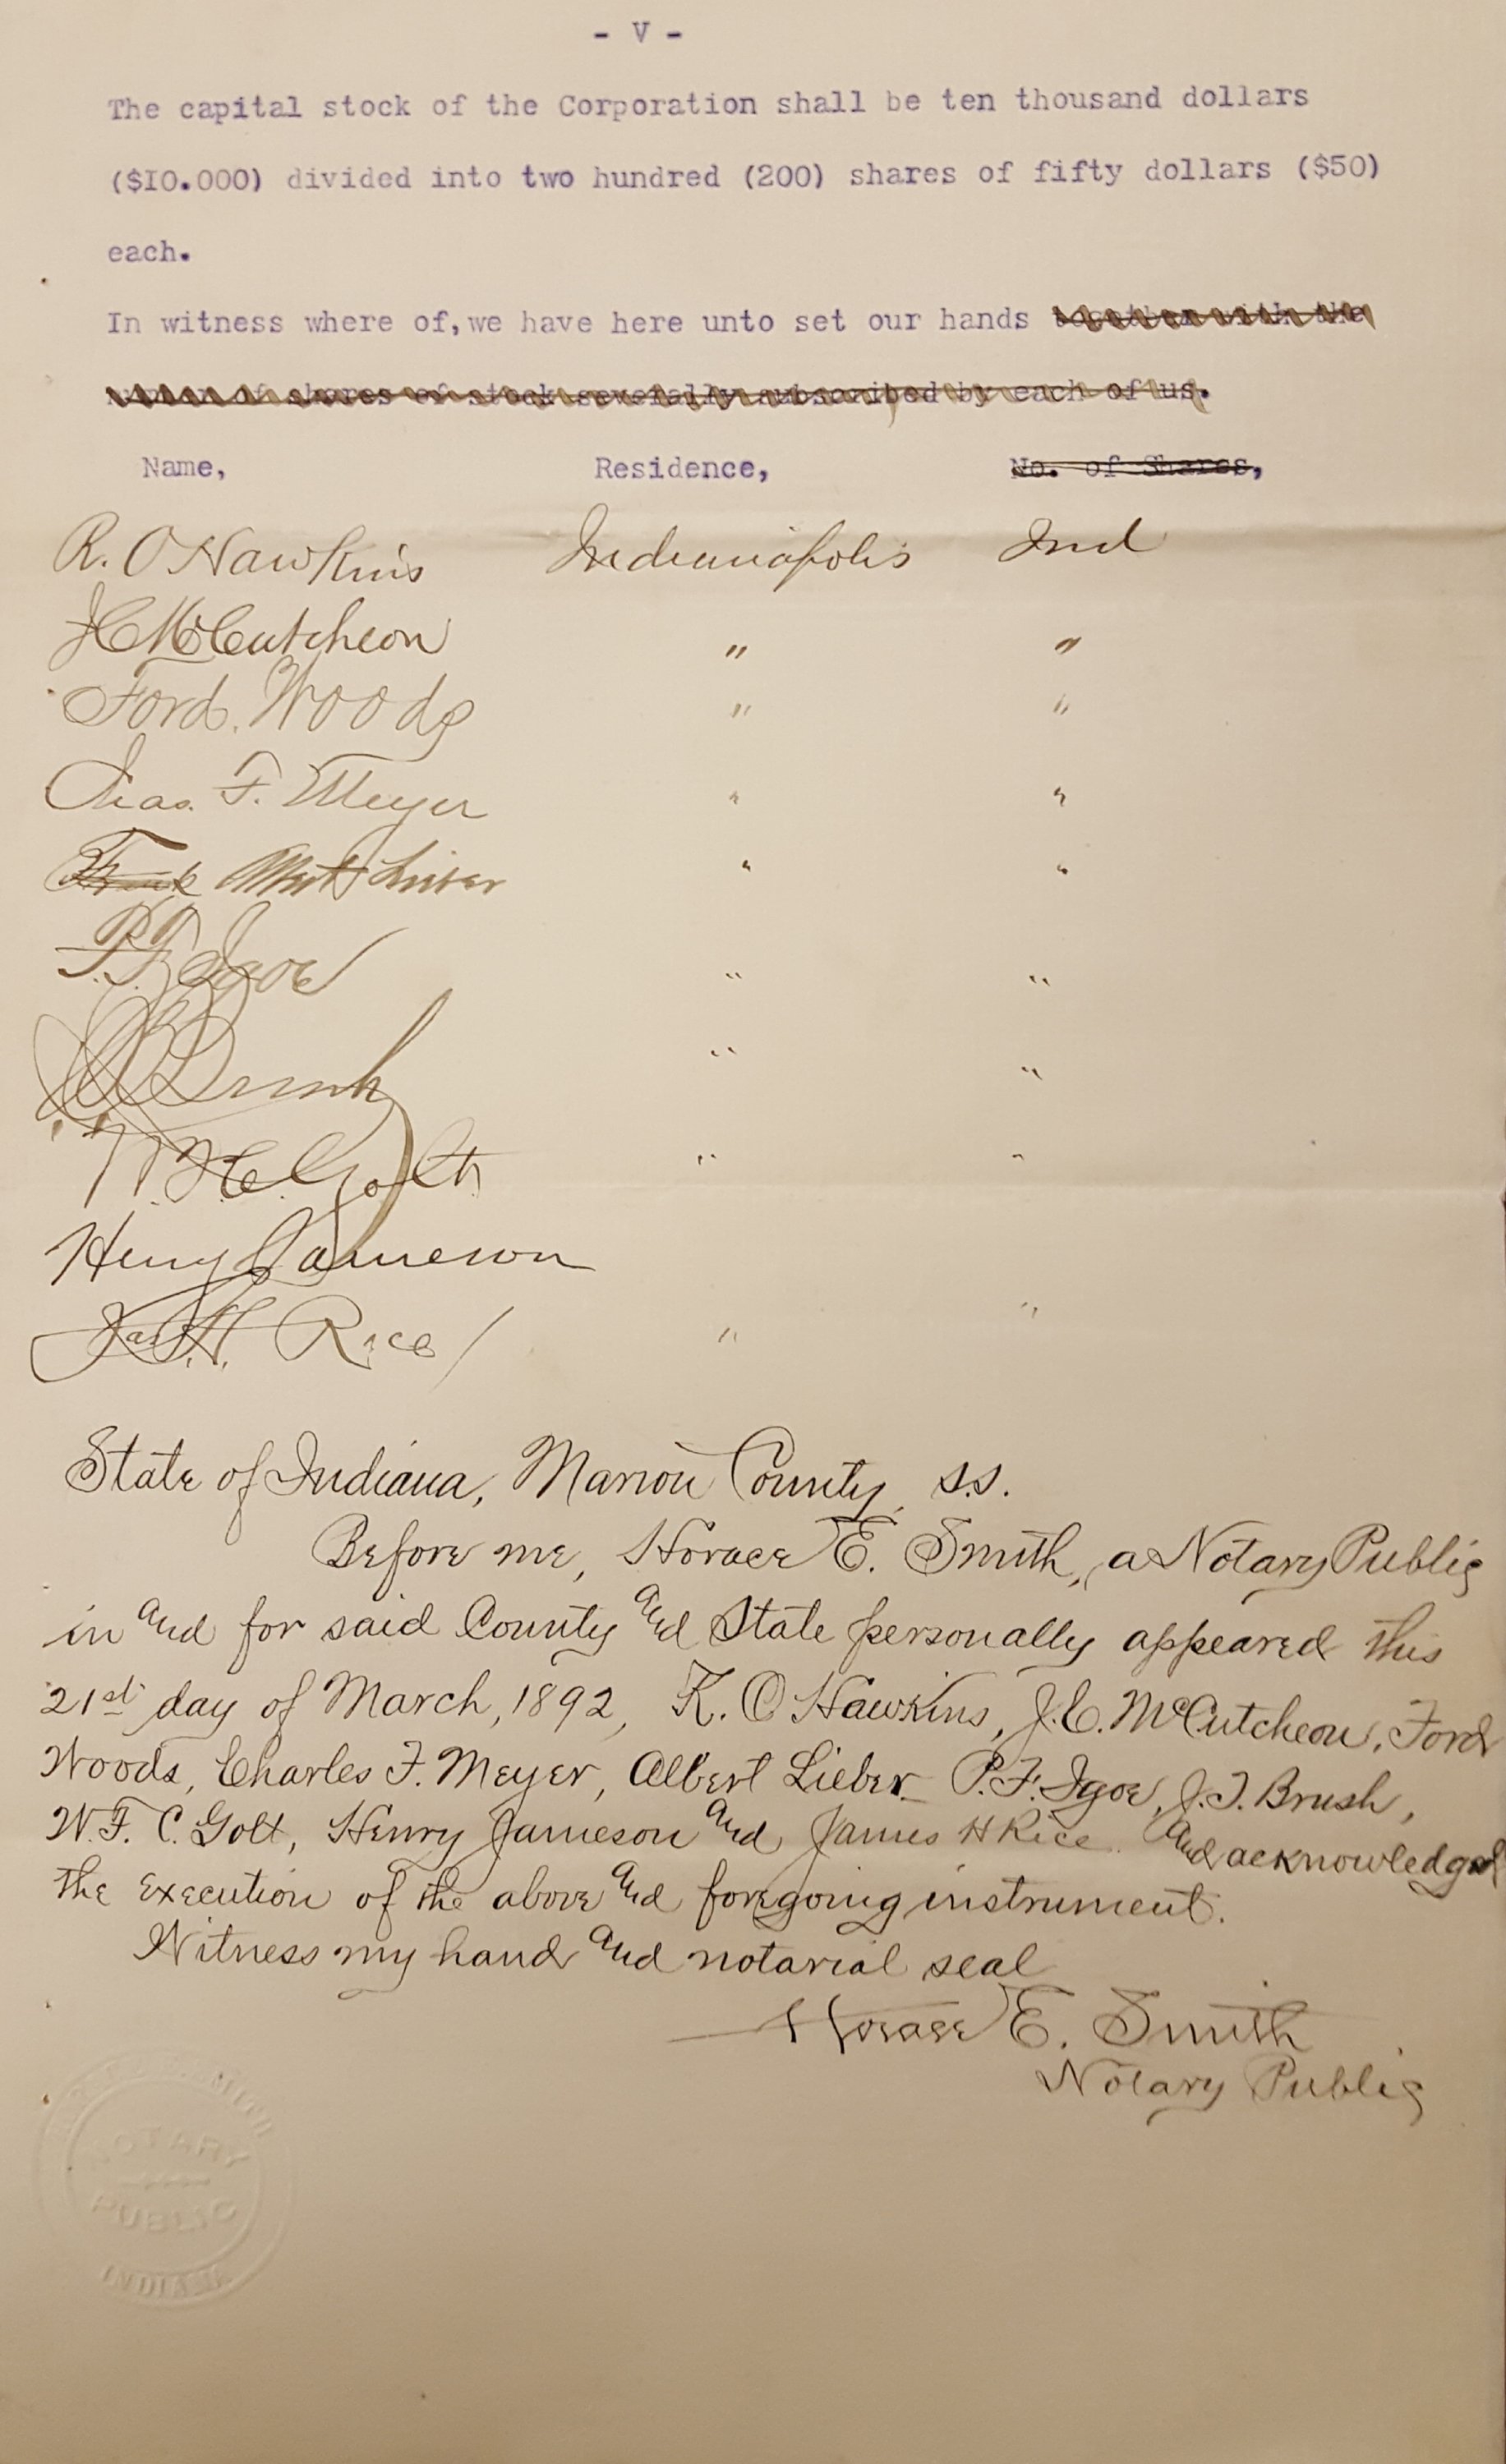 - V -
The capital stock of the Corporation shall be ten thousand dollars
($I0.000) divided into two hundred (200) shares of fifty dollars ($50)
each.
In witness where of, we have here unto set our hands together with the
number of shares of stock severally subscribed by each of us.
Name, Residence, No. of Shares,
R. O Hawkins Indianapolis Ind
J C McCutcheon " "
Ford. Woods " "
Chas. F. Meyer " "
Frank Albert Lieber " "
P. F. Igoe " "
J T Brush " "
W. F. C. Golt. " "
Henry Jameson
Jas. H. Rice " "
State of Indiana, Marion County, s.s.
Before me, Horace E. Smith, a Notary Public
in and for said County and State personally appeared this
21st day of March, 1892, R. O Hawkins, J. C. McCutcheon, Ford
Woods, Charles F. Meyer, Albert Lieber P. F. Igoe, J. T. Brush,
W. F. C. Golt, Henry Jameson and James H Rice and acknowledged
the execution of the above and foregoing instrument.
Witness my hand and notarial seal
Horace E. Smith
Notary Public
NOTARY
PUBLIC
INDIANA